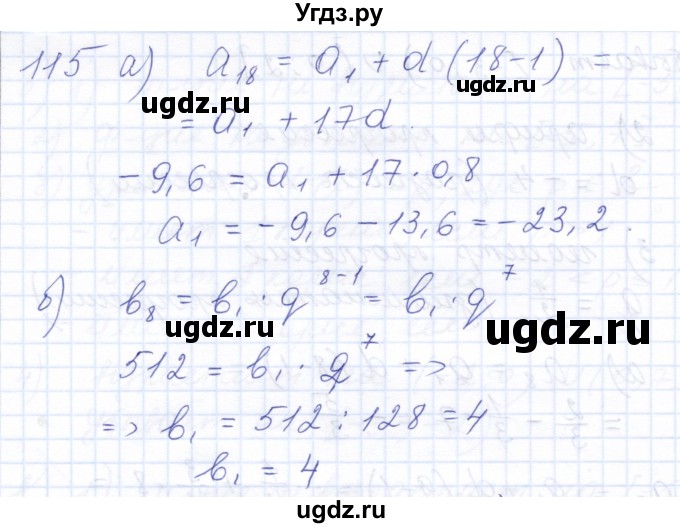 Угдз.ру
115 а) a₁₈ = a₁ + d(18-1) =
ugdz.ru ugdz.ru
= a₁ + 17d.
-9,6 = a₁ + 17·0,8
a₁ = -9,6 - 13,6 = -23,2.
б) b₈ = b₁·q⁸⁻¹ = b₁·q⁷
ugdz.ru ugdz.ru
512 = b₁·2⁷ =>
=> b₁ = 512 : 128 = 4
ugdz.ru
b₁ = 4
ugdz.ru